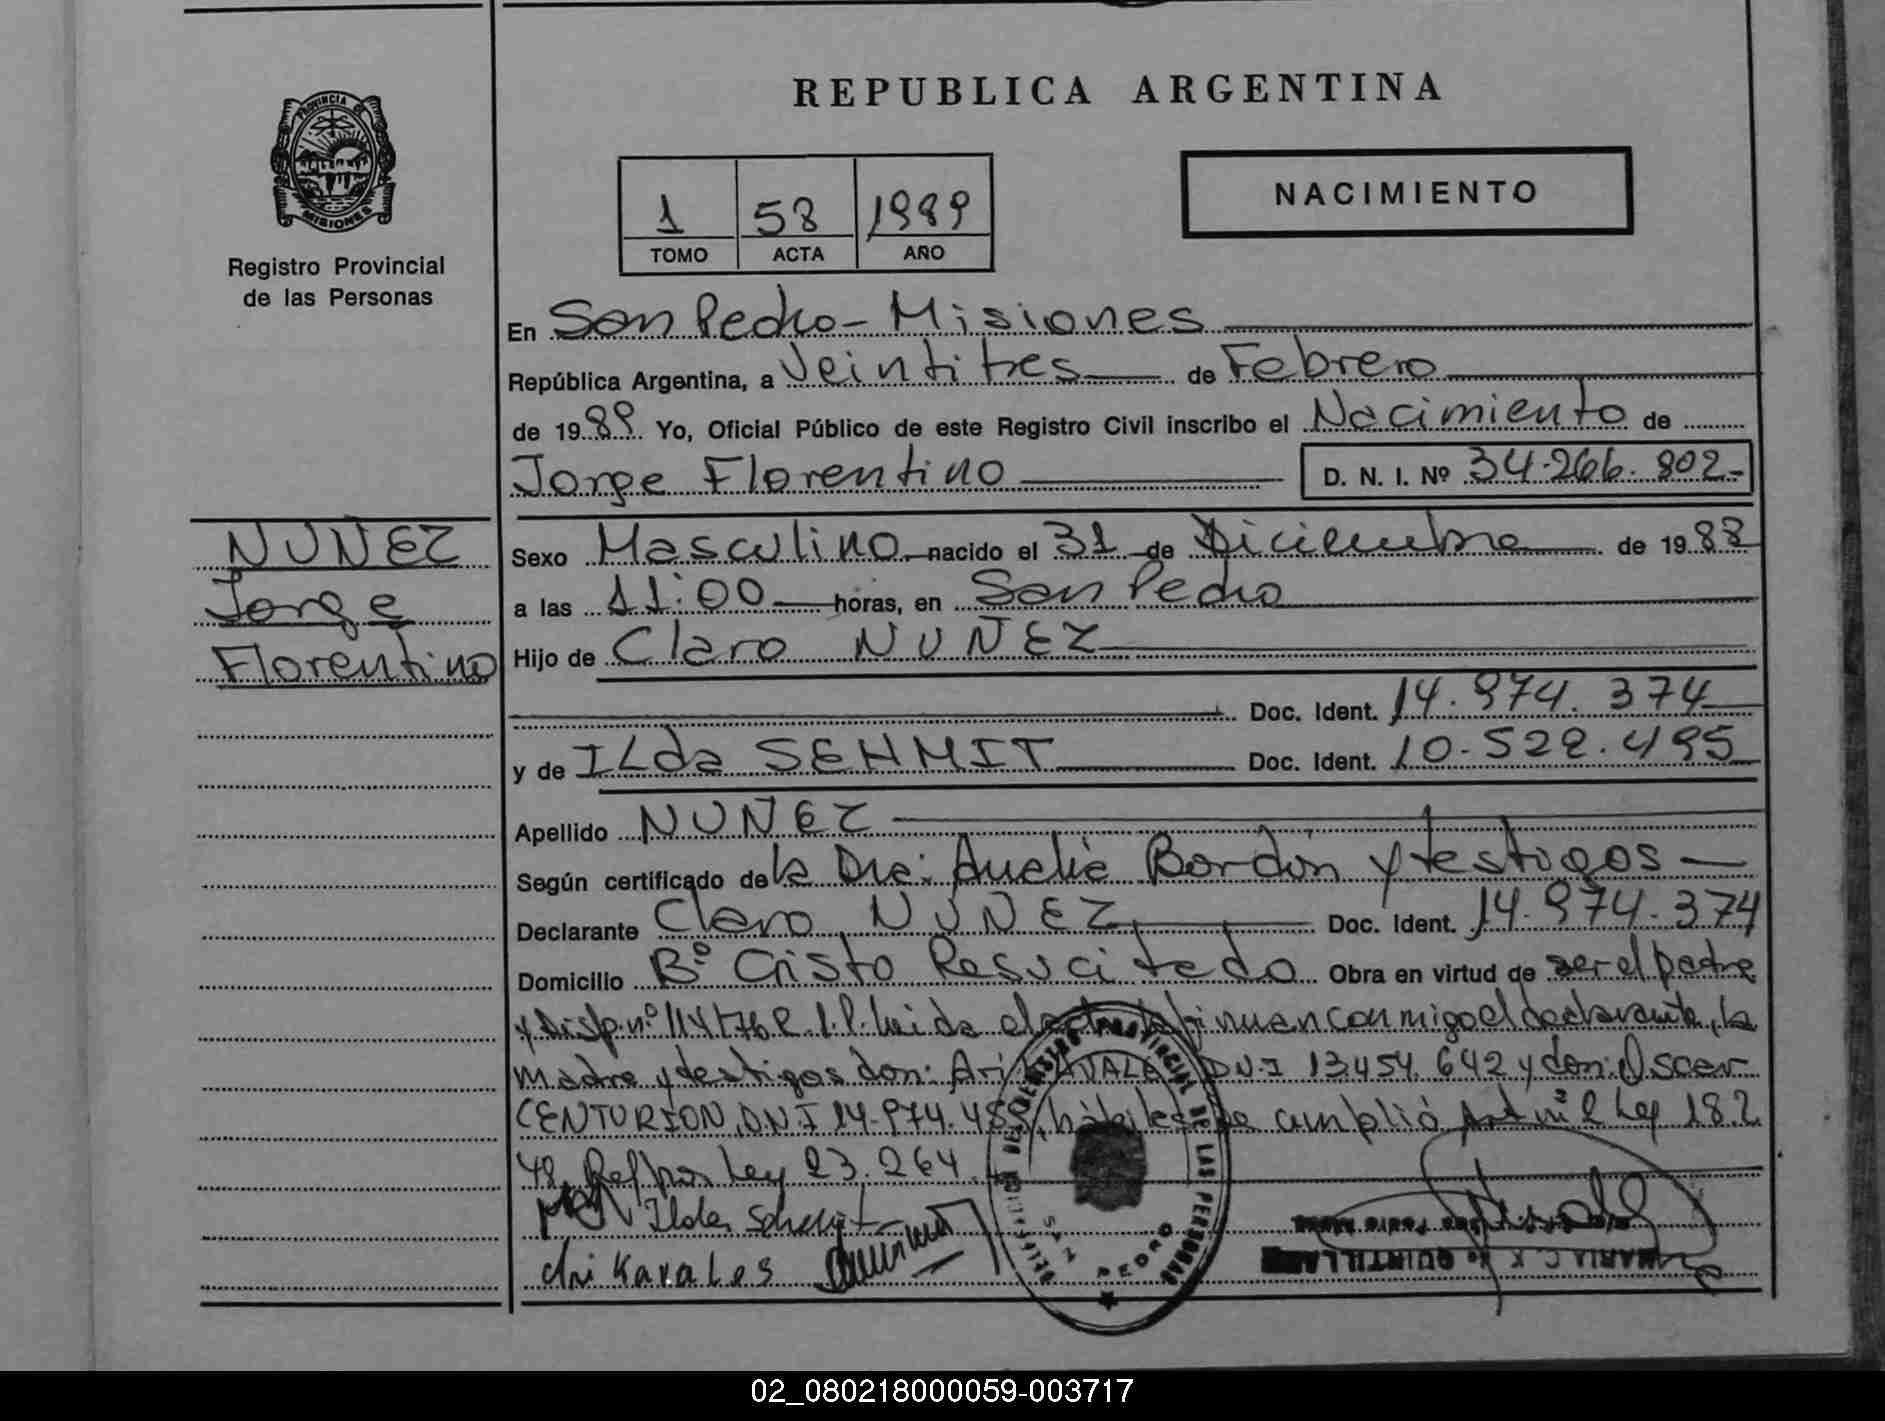 PROVINCIA DE
MISIONES
Registro Provincial
de las Personas
REPUBLICA ARGENTINA
NACIMIENTO
1 58 1989
TOMO ACTA AÑO
En San Pedro - Misiones
República Argentina, a Veintitres de Febrero
de 1989. Yo, Oficial Público de este Registro Civil inscribo el Nacimiento de
Jorge Florentino D. N. I. Nº 34.266.802-
NUÑEZ
Jorge
Florentino
Sexo Masculino nacido el 31 de Diciembre de 1988
a las 11:00 horas, en San Pedro
Hijo de Claro NUÑEZ
Doc. Ident. 14.974.374
y de ILda SEHMIT Doc. Ident. 10.528.495
Apellido NUÑEZ
Según certificado de la Dra: Amelia Bordón y testigos
Declarante Claro NUÑEZ Doc. Ident. 14.974.374
Domicilio Bº Cristo Resucitado Obra en virtud de ser el padre
y Disp. nº 114/76 R.P.P. Leida el acta la firman conmigo el declarante, la
madre y testigos don: Ari D.N.I 13.454.642 y don: Oscar
CENTURION, D.N.I 14.974. hábiles se cumplió Ley 18.2
48 Ref por Ley 23.264.
Ilda Sehmit
REGISTRO PROVINCIAL DE LAS PERSONAS
SAN PEDRO
MARIA C. K. de QUINTILLAN
02_080218000059-003717